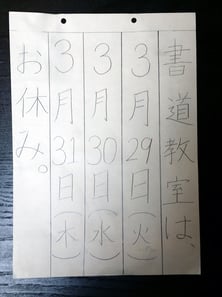 書道教室は、
3月29日(火)
3月30日(水)
3月31日(木)
お休み。